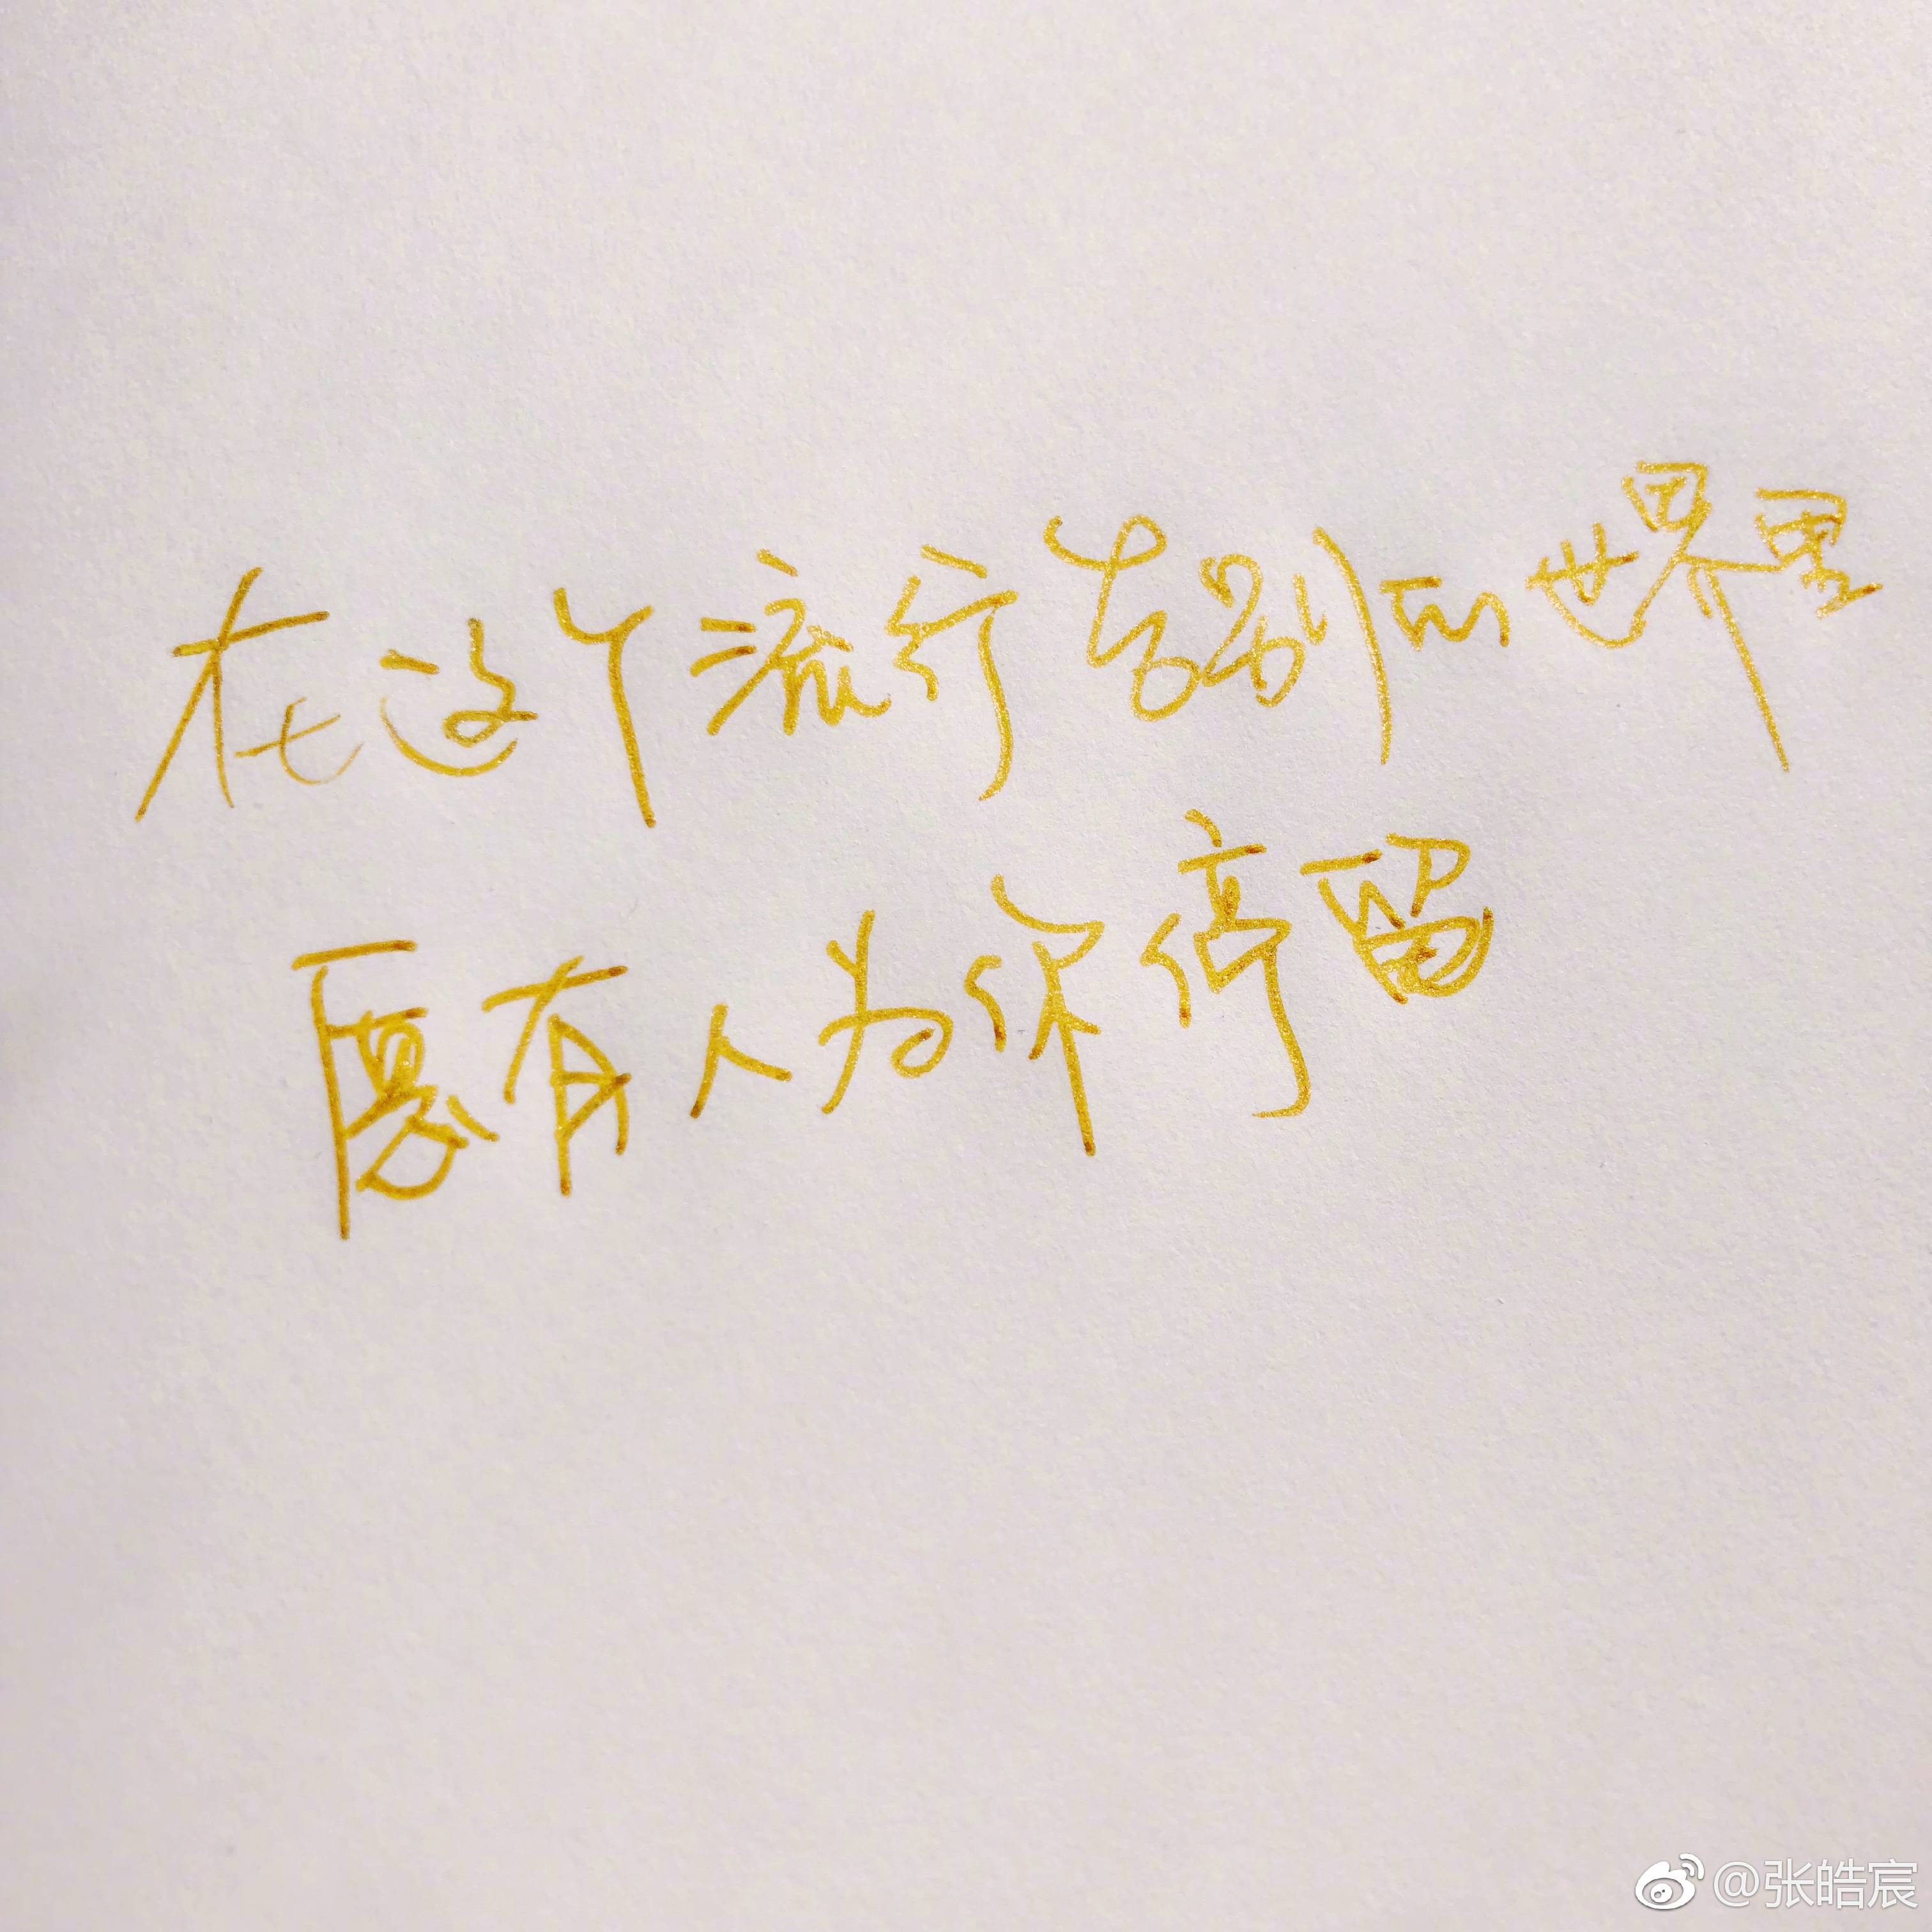 在这个流行离别的世界里
愿有人为你停留
@张皓宸